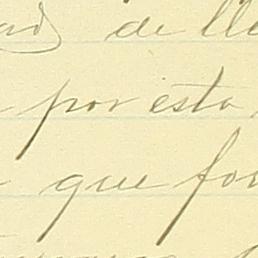 ad de lle
por esto
que for